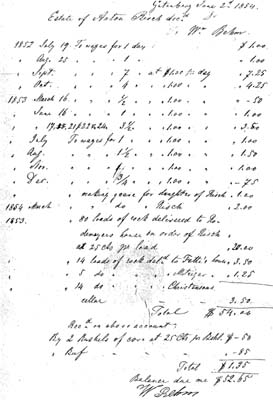 Gutenberg June 2d 1854.
Estate of Anton Resch decd Dr
To Wm Rehm.
1852 July 19 To wages for 1 day $ 1.00
" Aug. 25 " " 1 " 1.00 " 1.00
" Sept. " " 7 " at $1.00 pr day " 7.25
" Oct. " " 4 " " 1.00 " 4.25
1853 March 16 " " ½ " " 1.00 " -50
" June 16 " " 1 " " 1.00 " 1.00
" " 17, 21 22 & 24 " 3½ " " 1.00 " 3.50
" July To wages for 1 " " 1.00 " 1.00
" Aug. " " 1½ " " 1.00 " 1.50
" Nov. " " 1 " " 1.00 " 1.00
" Dec. " " ¾ " " 1.00 " -75
" making grave for daughter of Resch " 1.00
1854 March " do " Resch " 2.00
1853. " 80 loads of rock delivered to
house on order of Resch
at 25 Cts pr load " 20.00
" 14 loads of rock deld to house " 3.50
" 5 do " Metzger " 1.25
" 14 do " Christmann
cellar " 3.50
Total $ 54.00
Rec'd on above account:
By 2 Bushels of corn at 25 Cts pr Bshl. $ -50
" Beef " -85
Total $ 1.35
Balance due me $ 52.65
W Rehm